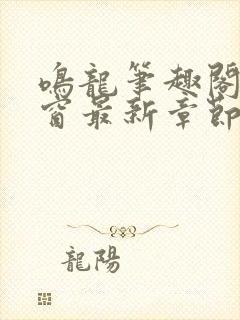 鳴龍筆趣閣
窗最新章節
龍陽